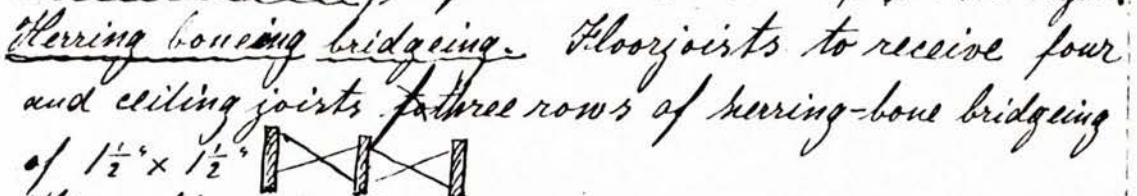 Herring boneing bridgeing. Floorjoists to receive four
and ceiling joists three rows of herring-bone bridgeing
of 1½" x 1½"